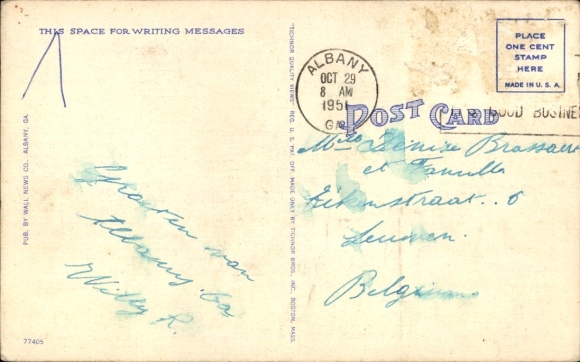 THIS SPACE FOR WRITING MESSAGES
PUB. BY WALL NEWS CO., ALBANY, GA.
Groeten van
Albany. Ga
Willy R.
77405
"TECHNOR QUALITY VIEWS" REG. U. S. PAT. OFF. MADE ONLY BY TICHNOR BROS., INC., BOSTON, MASS.
PLACE
ONE CENT
STAMP
HERE
MADE IN U. S. A.
ALBANY
OCT 29
8 AM
1951
GA.
POST CARD
GOOD BUSINE
Mlle Denise Brassaert
et Famille
Eikenstraat.. 6
Leuven.
Belgium